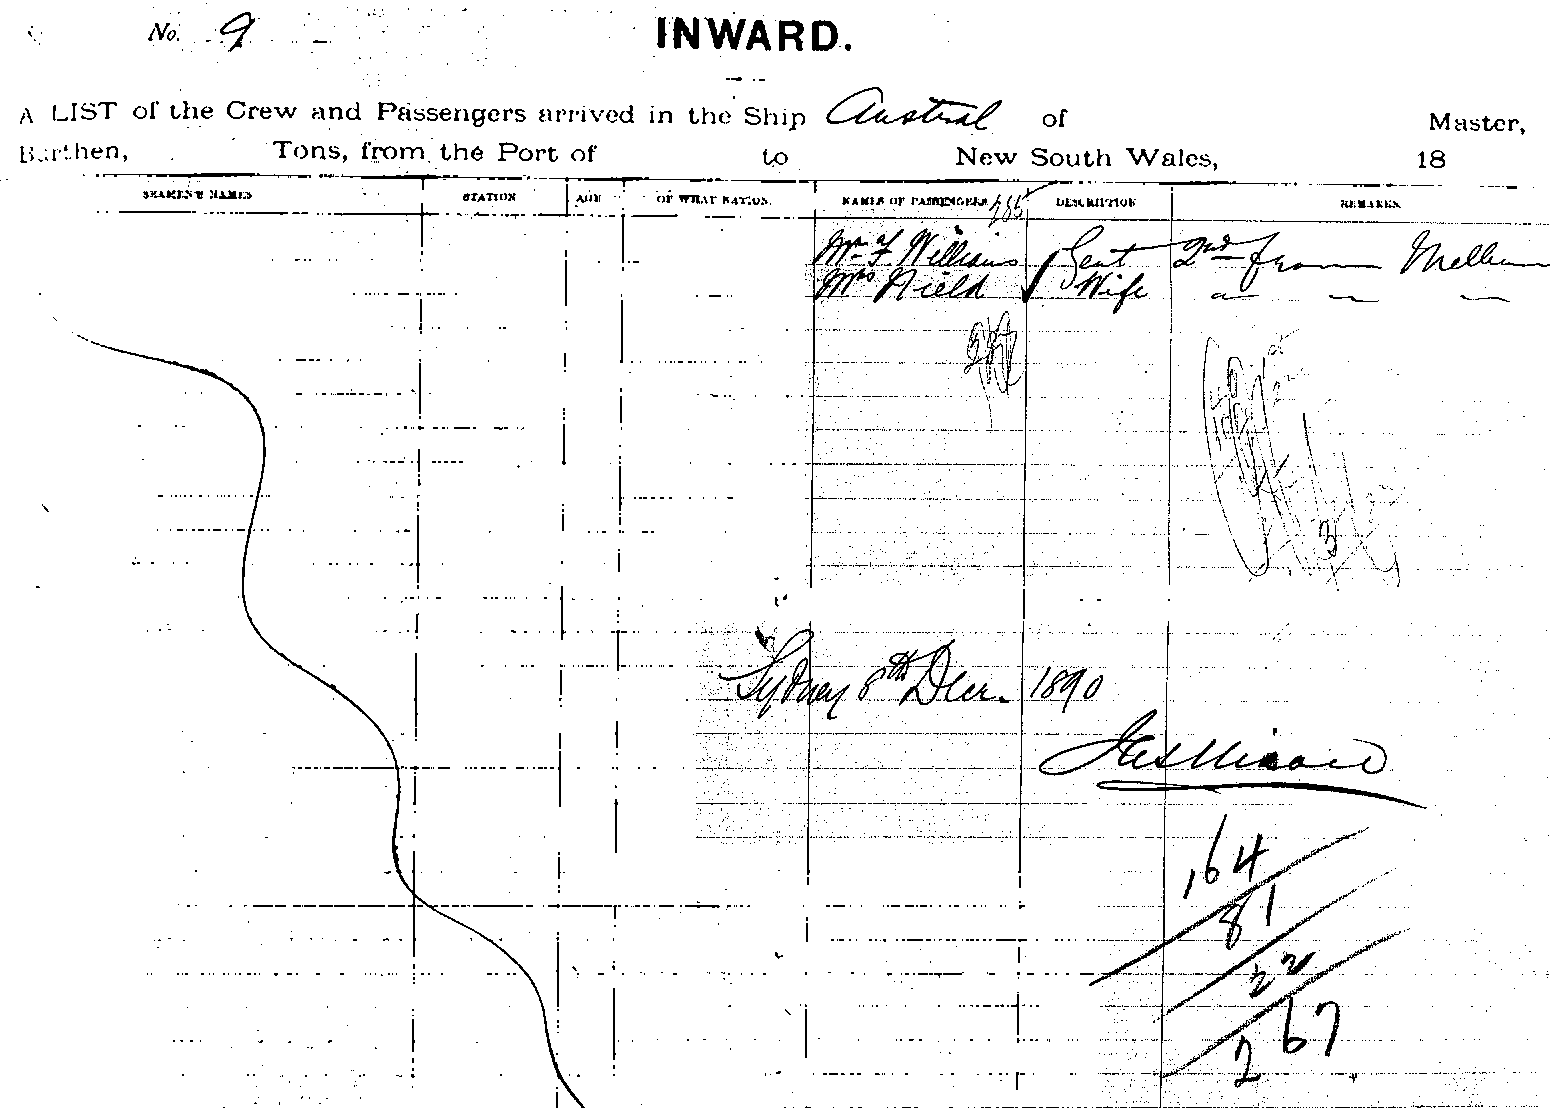 No. 9
INWARD.
A LIST of the Crew and Passengers arrived in the Ship Austral of Master,
Burthen, Tons, from the Port of to New South Wales, 18
SEAMEN'S NAMES STATION AGE OF WHAT NATION. NAMES OF PASSENGERS DESCRIPTION REMARKS
285
Mr F Williams Gent 2nd from
Mrs Nield Wife " " "
Sydney 8th Decr. 1890
164
81
22
267